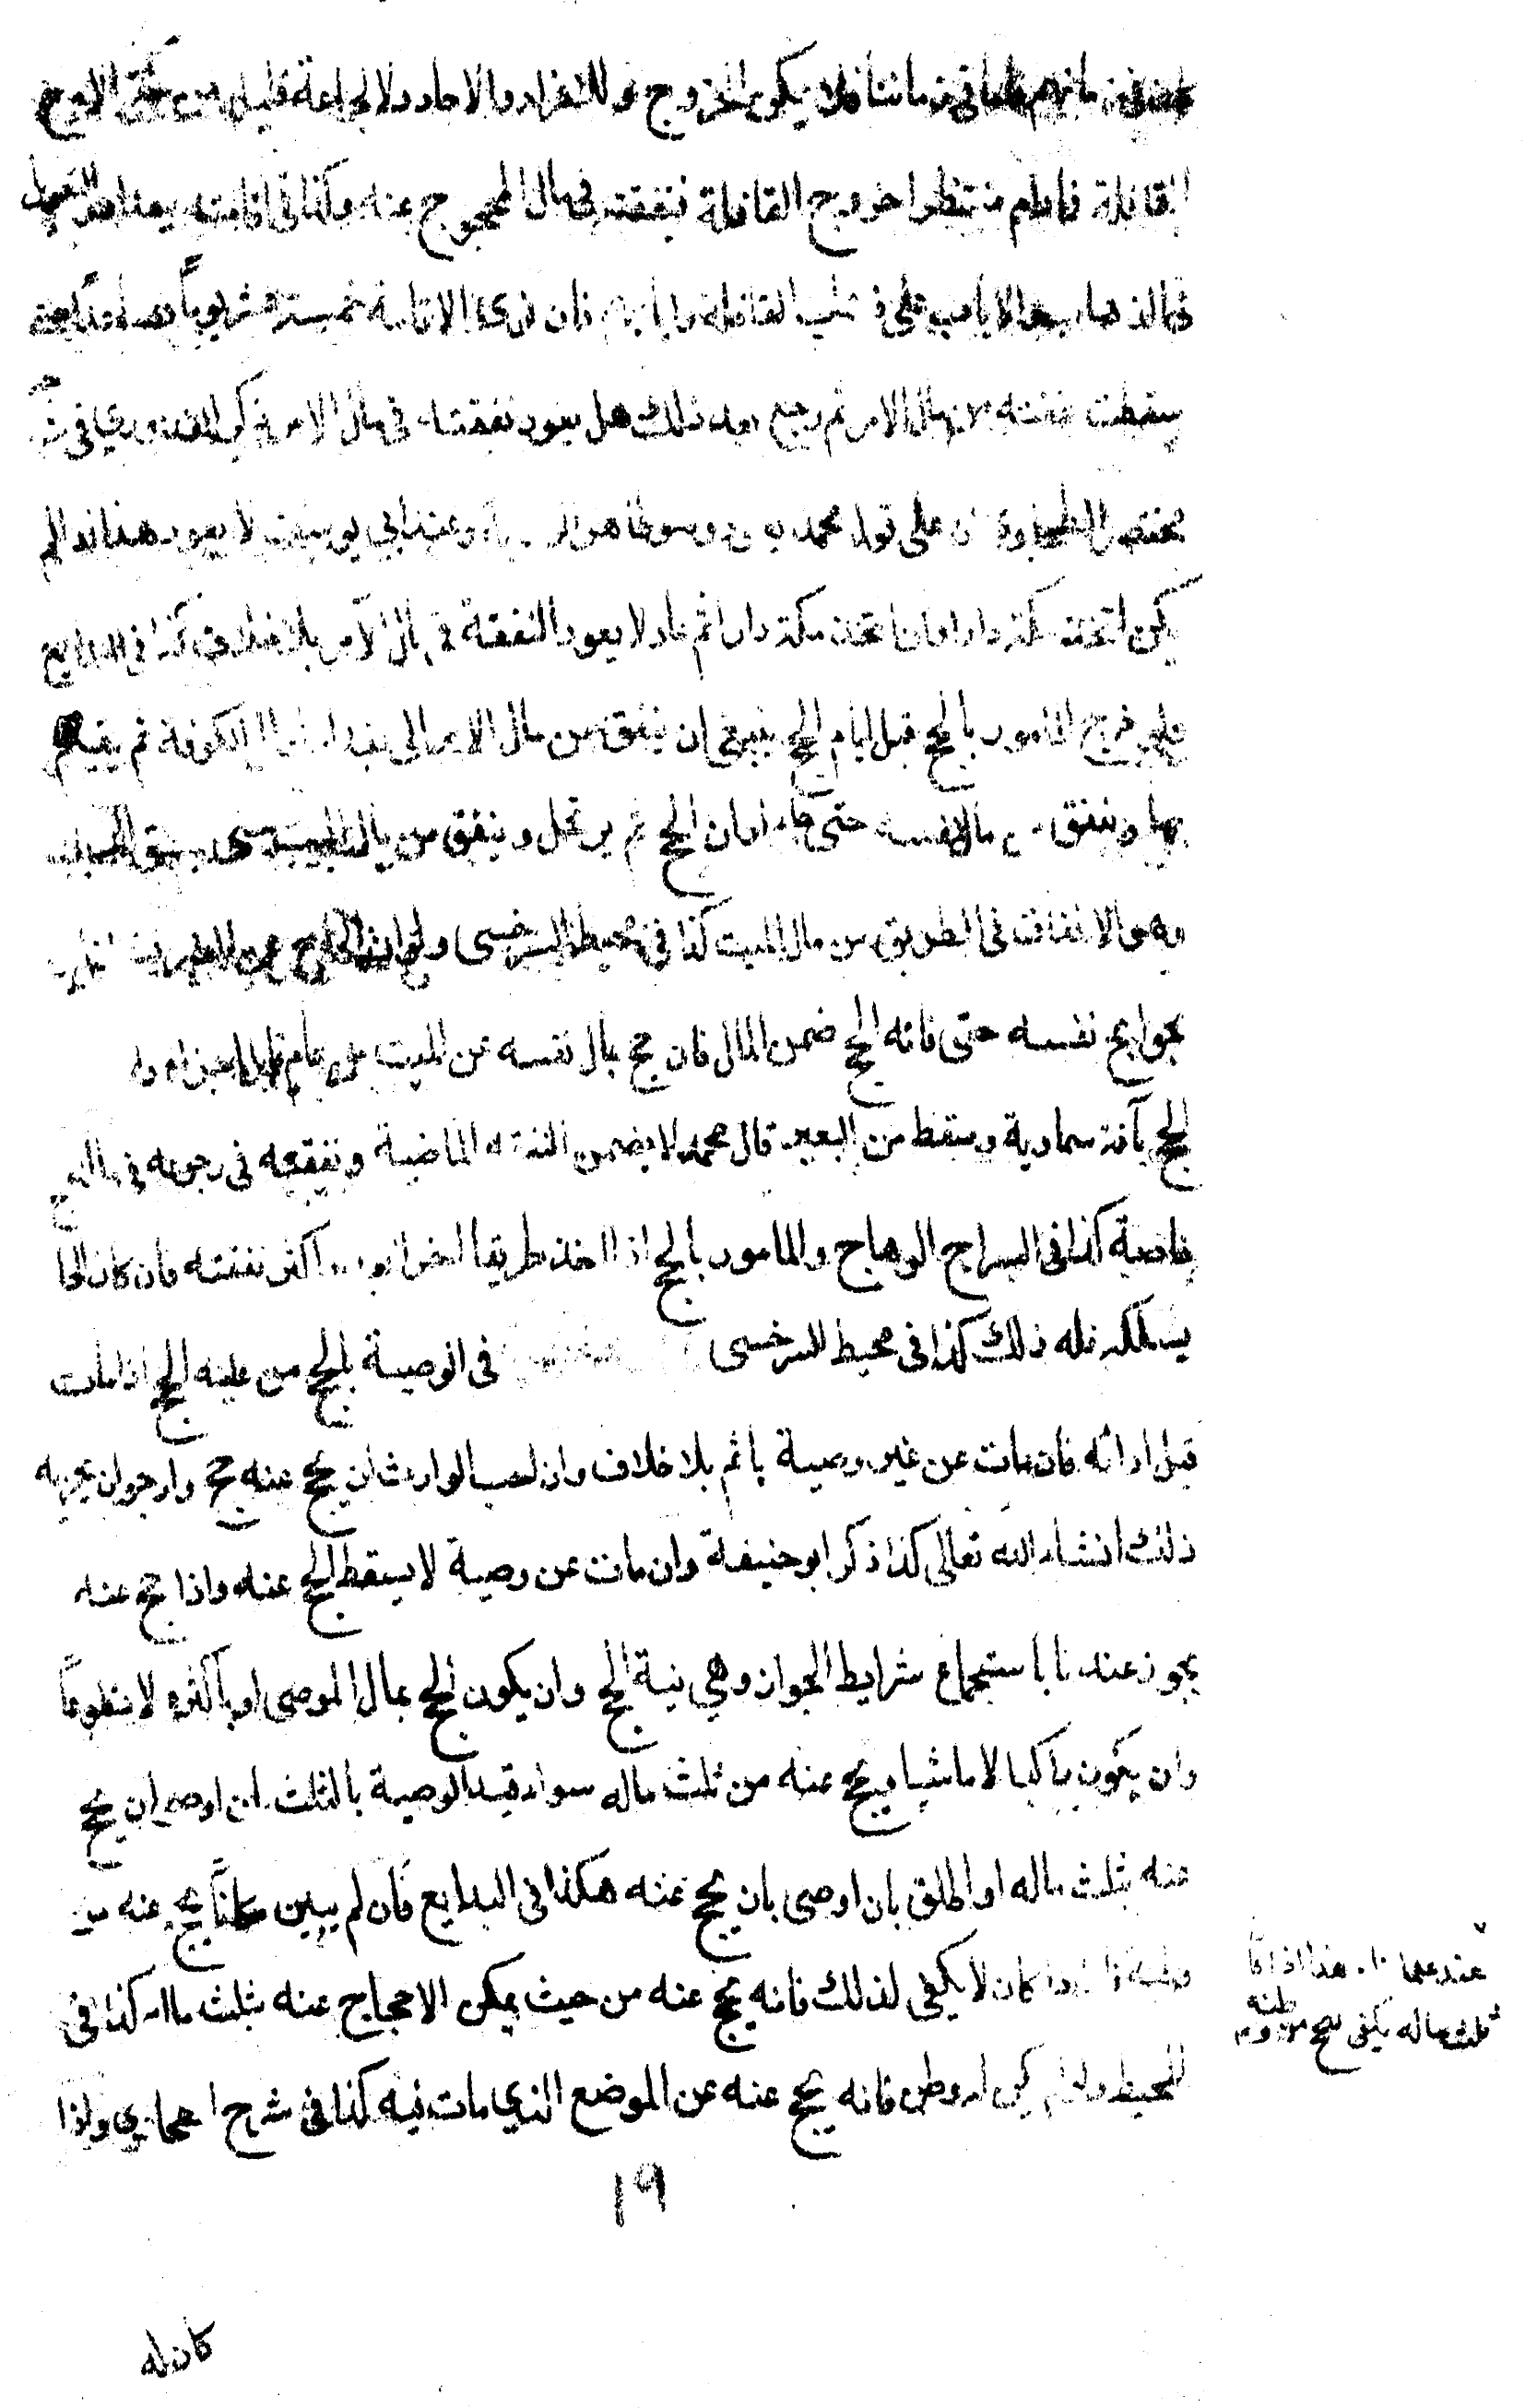 في زماننا فلا يمكن الخروج للافراد والاحاد ولا لجماعة قليلة من مكة الا مع
القافلة فادام منتظرا خروج القافلة فنفقته في مال المحجوج عنه وكذا في اقامته ببغداد
الذهاب والاياب على ذهاب القافلة وايابهم فان نوى الاقامة خمسة عشر يوما فصاعدا
سقطت نفقته من مال الامر ثم رجع بعد ذلك هل يعود نفقته في مال الامر ذكر القدوري في
مختصر الطحاوي على قول محمد يعود وهو ظاهر الرواية وعند ابي يوسف لا يعود هذا اذا لم
يكن اتخذ مكة دارا فان اتخذ مكة دارا ثم عاد لا يعود النفقة في مال الآمر بلا خلاف كذا في البدايع
خرج المامور بالحج قبل ايام الحج ينبغي ان ينفق من مال الامر الى بغداد او الى الكوفة ثم يقيم
بها وينفق من مال نفسه حتى جاء اوان الحج ثم يرتحل وينفق من مال الميت
وهو الانفاق في الطريق من مال الميت كذا في محيط السرخسي
بحوايج نفسه حتى فاته الحج ضمن المال فان حج بمال نفسه عن الميت من عام قابل اجزاه
الحج بآفة سماوية وسقط من البعير قال محمد لا يضمن النفقة الماضية ونفقته في رجوعه في ماله
خاصة كذا في السراج الوهاج والمامور بالحج اذا اخذ طريقا اخر اكثر نفقته فان كان الحا
يسلكه فله ذلك كذا في محيط السرخسي في الوصية بالحج من عليه الحج اذا مات
قبل ادائه فان مات عن غير وصية ياثم بلا خلاف وان احب الوارث ان يحج عنه حج وارجو ان يجزيه
ذلك انشاء الله تعالى كذا ذكر ابو حنيفة وان مات عن وصية لا يسقط الحج عنه واذا حج عنه
يجوز عندنا باستجماع شرايط الجواز وهي نية الحج وان يكون الحج بمال الموصي او باكثره لا متطوعا
وان يكون راكبا لا ماشيا ويحج عنه من ثلث ماله سواء قيد الوصية بالثلث بان اوصى ان يحج
عنه بثلث ماله او اطلق بان اوصى بان يحج عنه هكذا في البدايع فان لم يبين مكانا يحج عنه من
كان لا يكفي لذلك فانه يحج عنه من حيث يمكن الاحجاج عنه بثلث ماله كذا في
المحيط وان لم يكن له وطن فانه يحج عنه عن الموضع الذي مات فيه كذا في شرح الطحاوي واذا
عند علمائنا هذا اذا كان
ثلث ماله يكفي للحج من وطنه
١٩
كان له